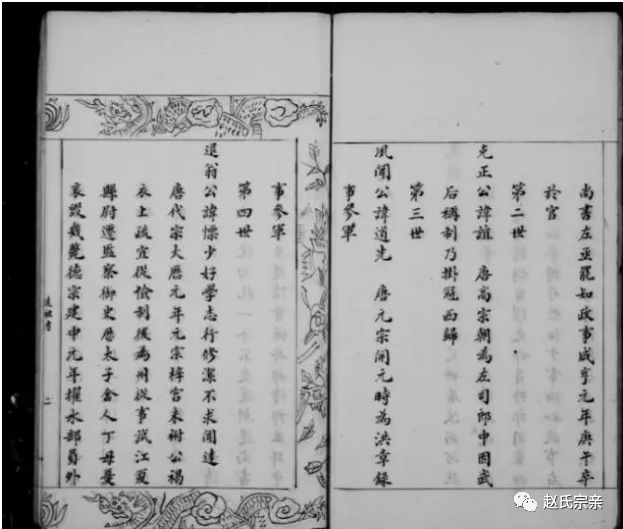 尚書左丞罷知政事咸亨元年庚午卒
於官
第二世
克正公諱誼 唐高宗朝為左司郎中因武
后稱制乃掛冠西歸
第三世
風聞公諱道先 唐元宗開元時為洪章錄
事參軍
事參軍
第四世
退翁公諱慄少好學志行修潔不求聞達
唐代宗大曆元年元宗梓宮未祔公褐
衣上疏宜從儉制後為州從事試江夏
縣尉遷監察御史歷太子舍人丁母憂
哀毀幾斃德宗建申元年擢水部員外
二
赵氏宗亲